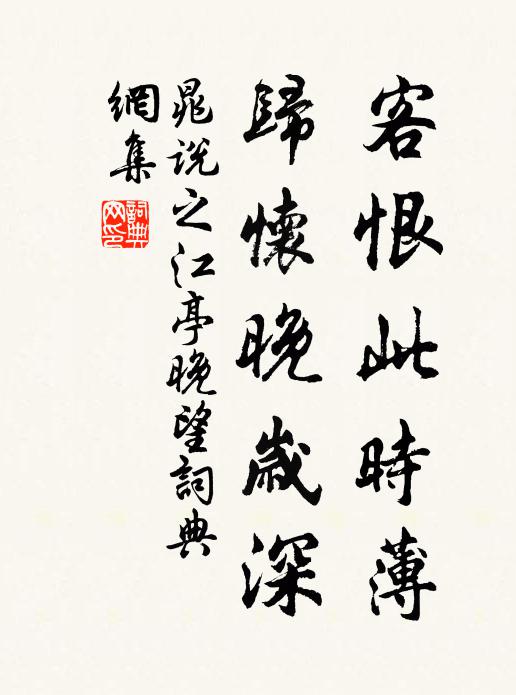 客恨此時薄
歸懷晚歲深
晁說之江亭晚望詞典
網集
詞典
网印